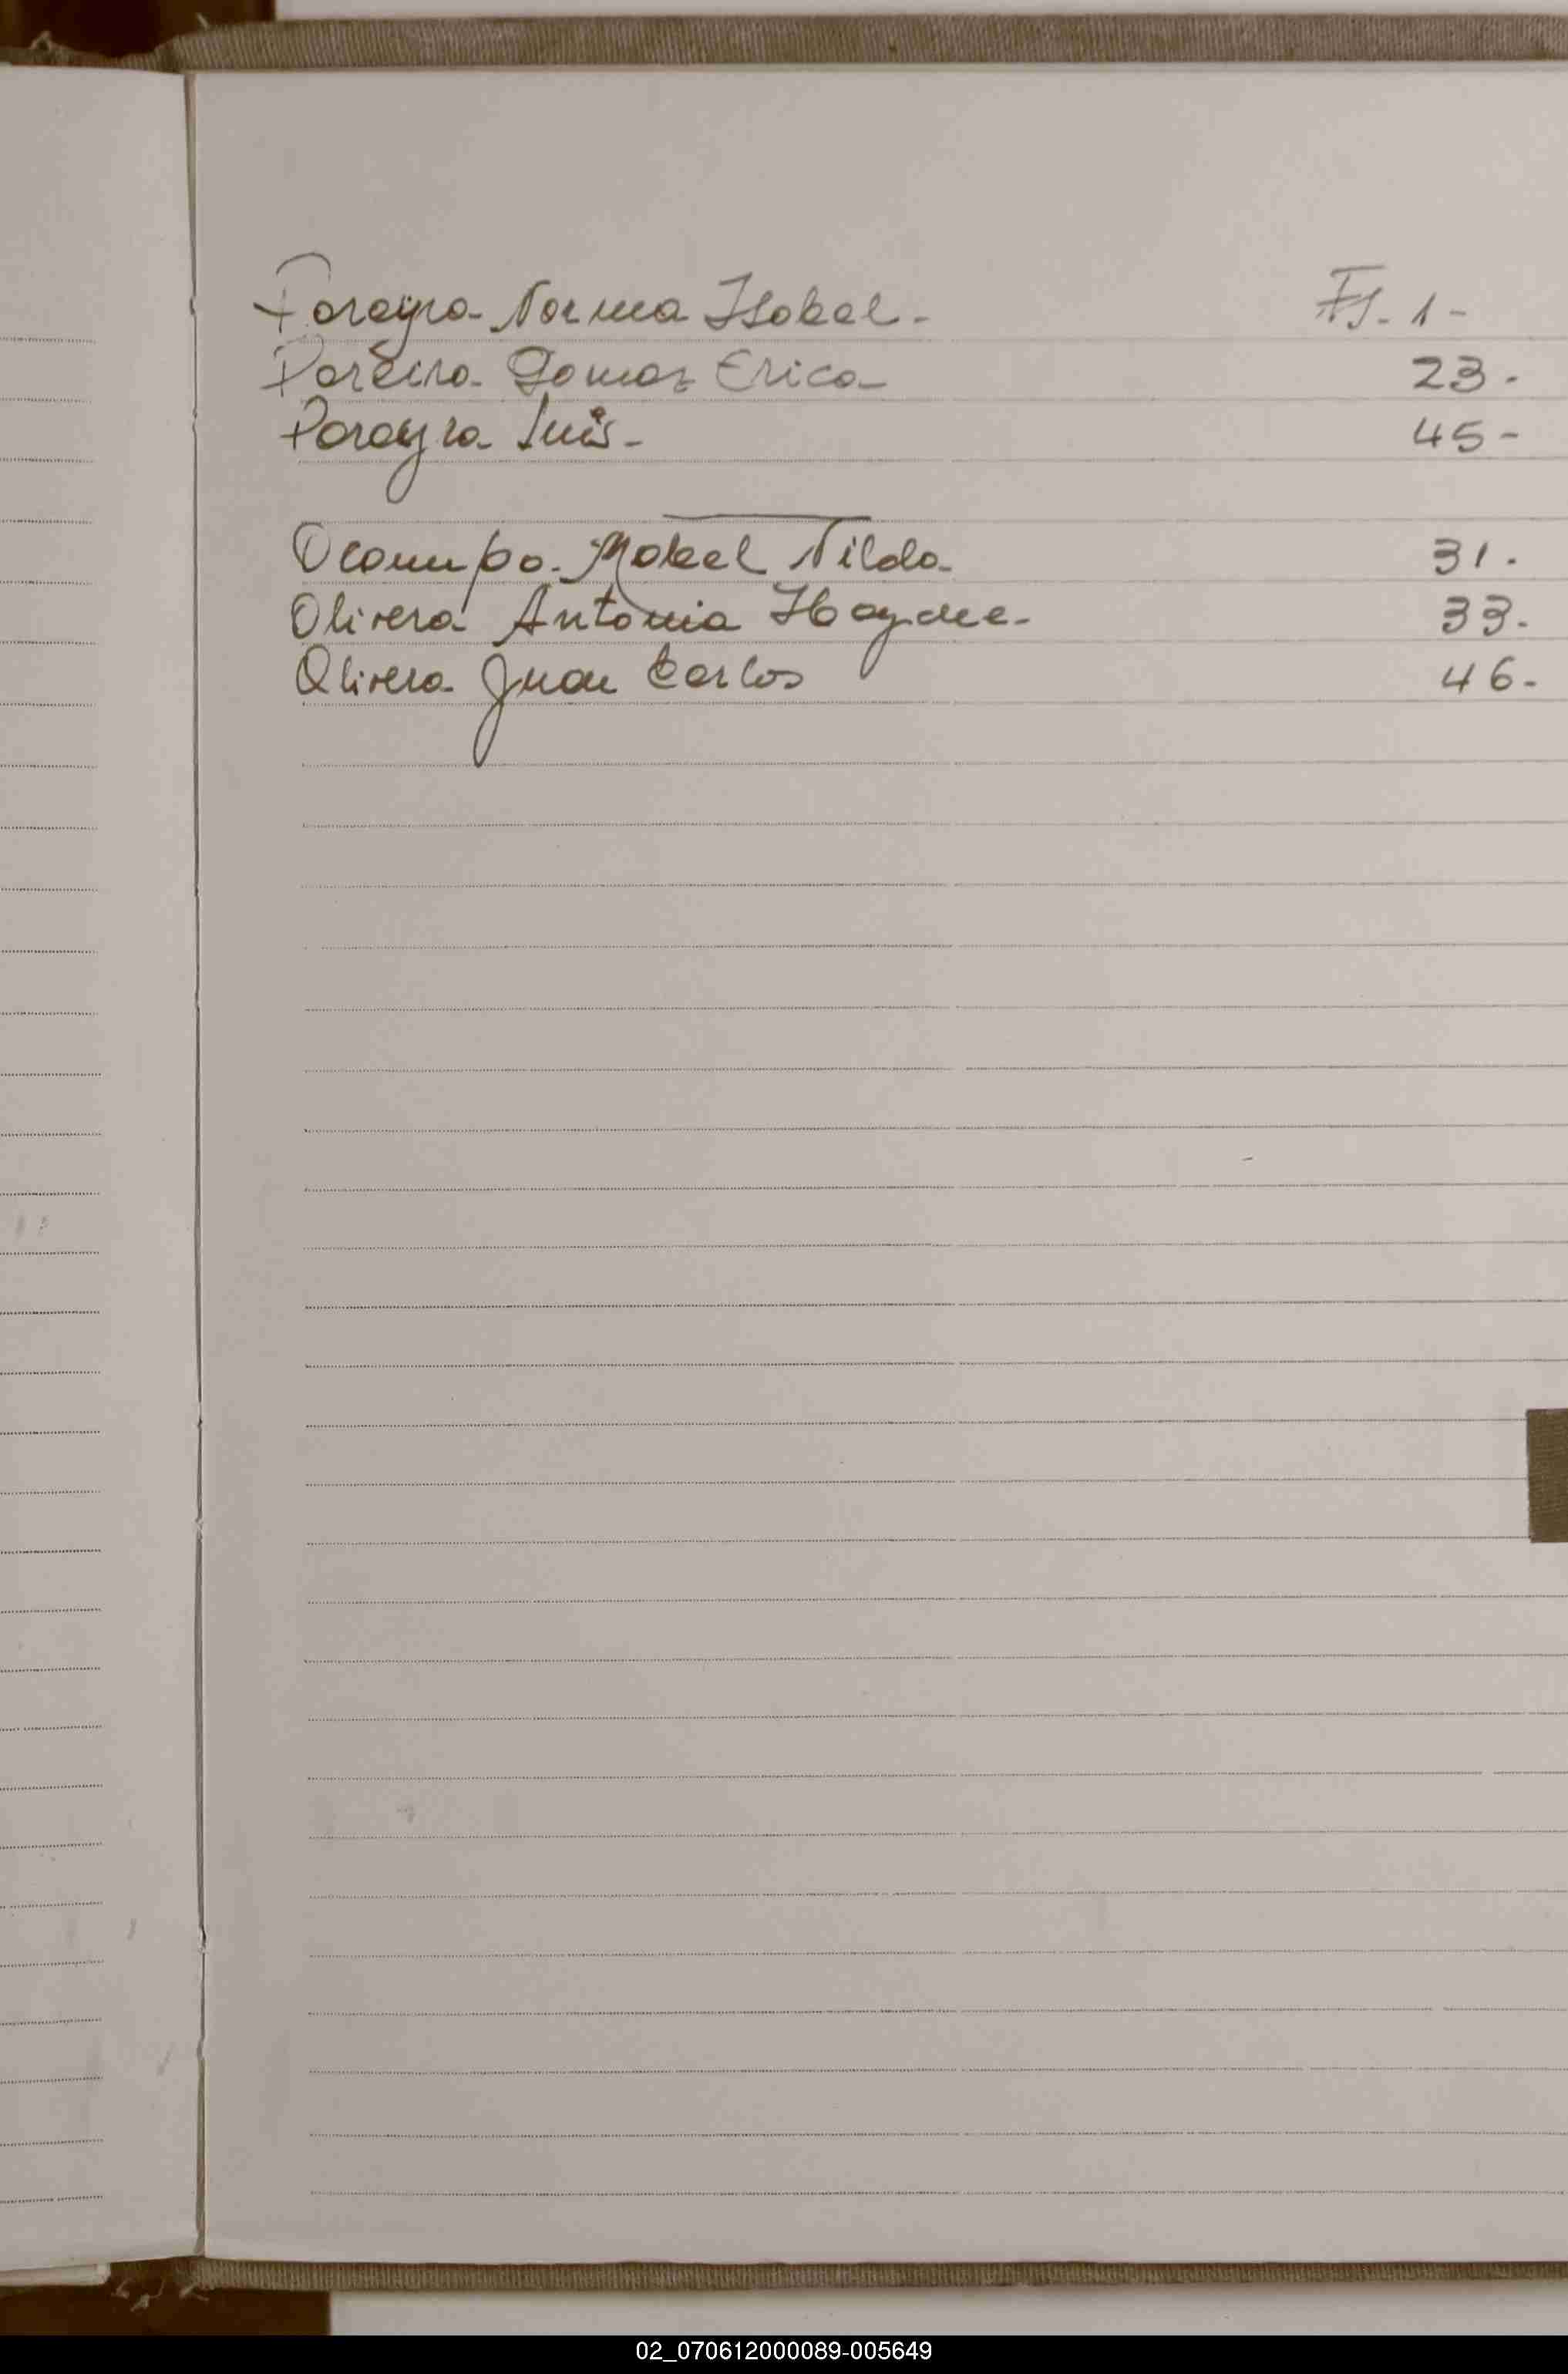 Pereyra Norma Isabel - Fs. 1 -
Pereira Gomez Erica - 23 -
Pereyra Luis - 45 -
Ocampo Mabel Nilda 31 -
Olivera Antonia Haydee - 33 -
Olivera Juan Carlos 46 -
02_070612000089-005649